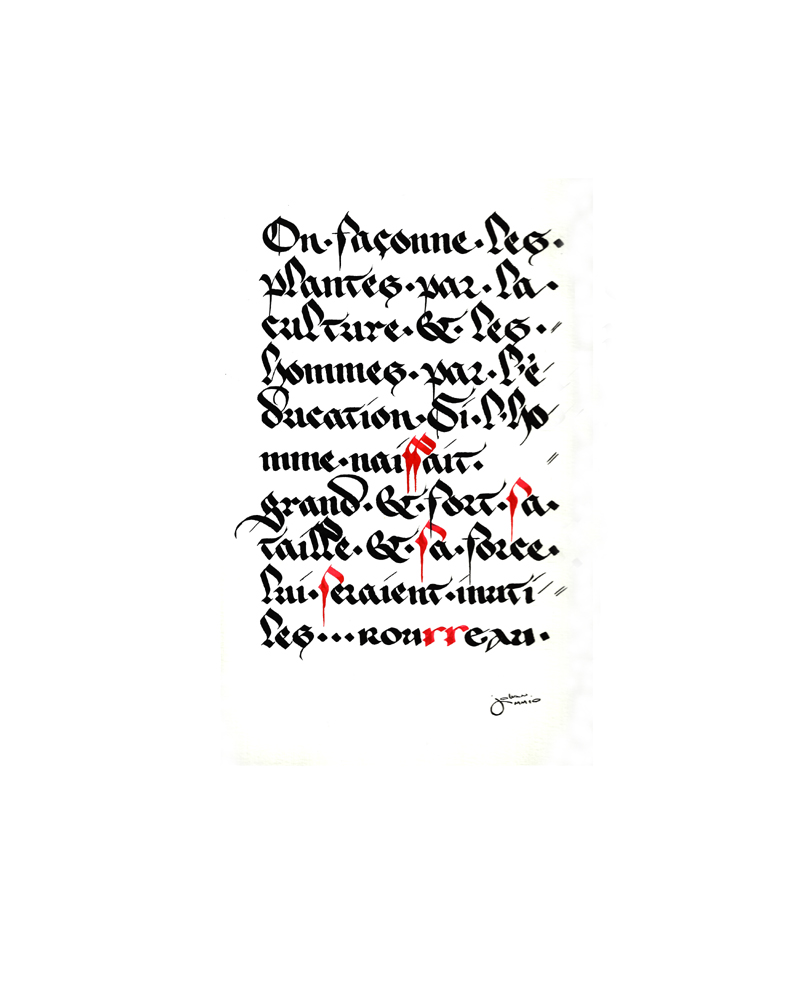 On·façonne·les·
plantes·par·la·
culture·&·les·
hommes·par·l'é
ducation·Si·l'ho
mme·naissait·
grand·&·fort·sa·
taille·&·sa·force·
lui·seraient·inuti
les···rourreau·
johan
MMIO